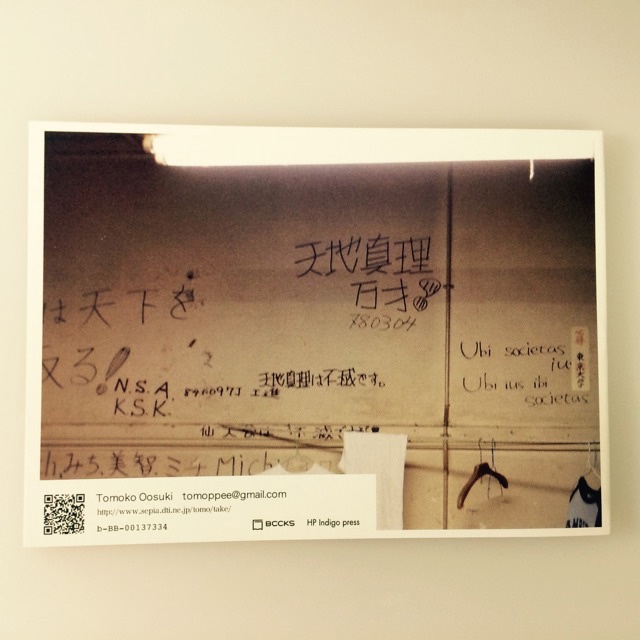 天地真理
万才!!
780304
は天下を
反る!
Ubi societas
ius
Ubi ius ibi
societas
東京大学
N.S.A.
K.S.K.
天地真理は不滅です。
み,みち,美智,ミチ Mich
Tomoko Oosuki tomoppee@gmail.com
http://www.sepia.dti.ne.jp/tomo/take/
b-BB-00137334
BCCKS HP Indigo press